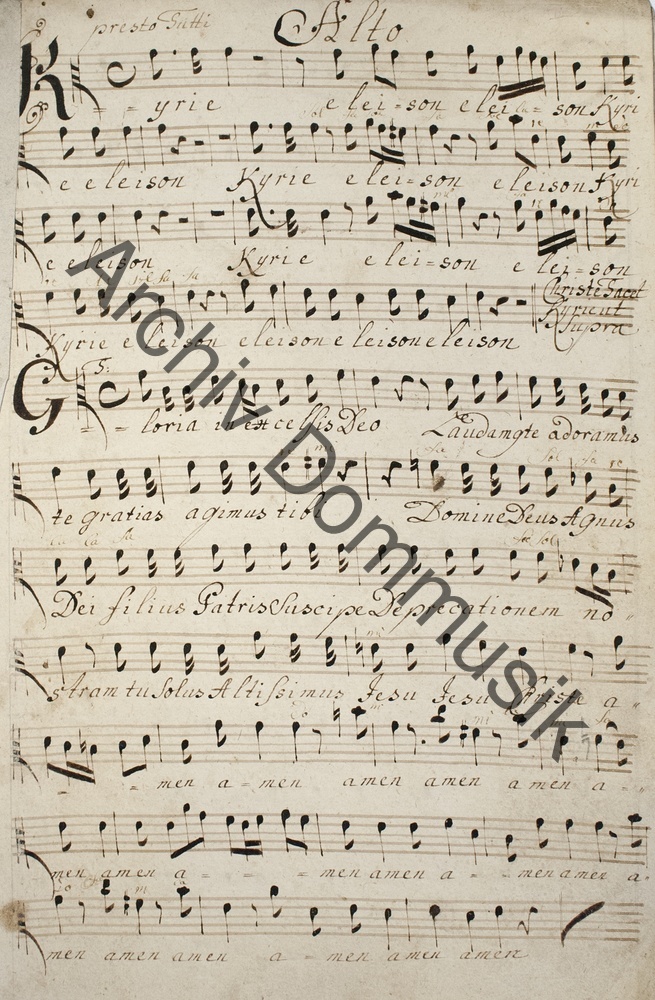 presto Tutti Alto
Kyrie elei=son elei=son Kyri
e eleison Kyrie elei=son eleison Kyri
e eleison Kyrie elei=son elei=son
Christe Tacet
Kyrie ut
Supra
Kyrie eleison eleison eleison eleison
Gloria in excelsis Deo Laudamgte adoramus
te gratias agimus tibi Domine Deus Agnus
Dei filius Patris Suscipe Deprecationem no
stram tu Solus Altissimus Jesu Jesu Christe a
men a=men amen amen amen a
men amen a = men amen a - men amen a
men amen amen a - men amen amen
Archiv Dommusik